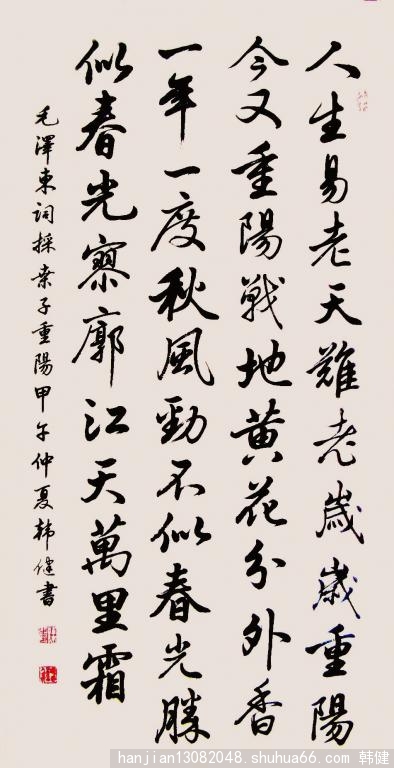 人生易老天難老歲歲重陽
今又重陽戰地黄花分外香
一年一度秋風勁不似春光勝
似春光寥廓江天萬里霜
毛澤東詞採桑子重陽甲午仲夏韩健書
hanjian13082048.shuhua66.com 韩健